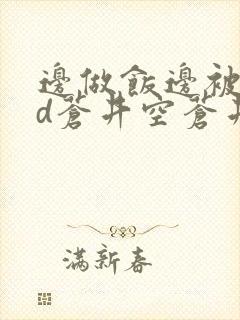 邊做飯邊被
d蒼井空蒼井
滿新春